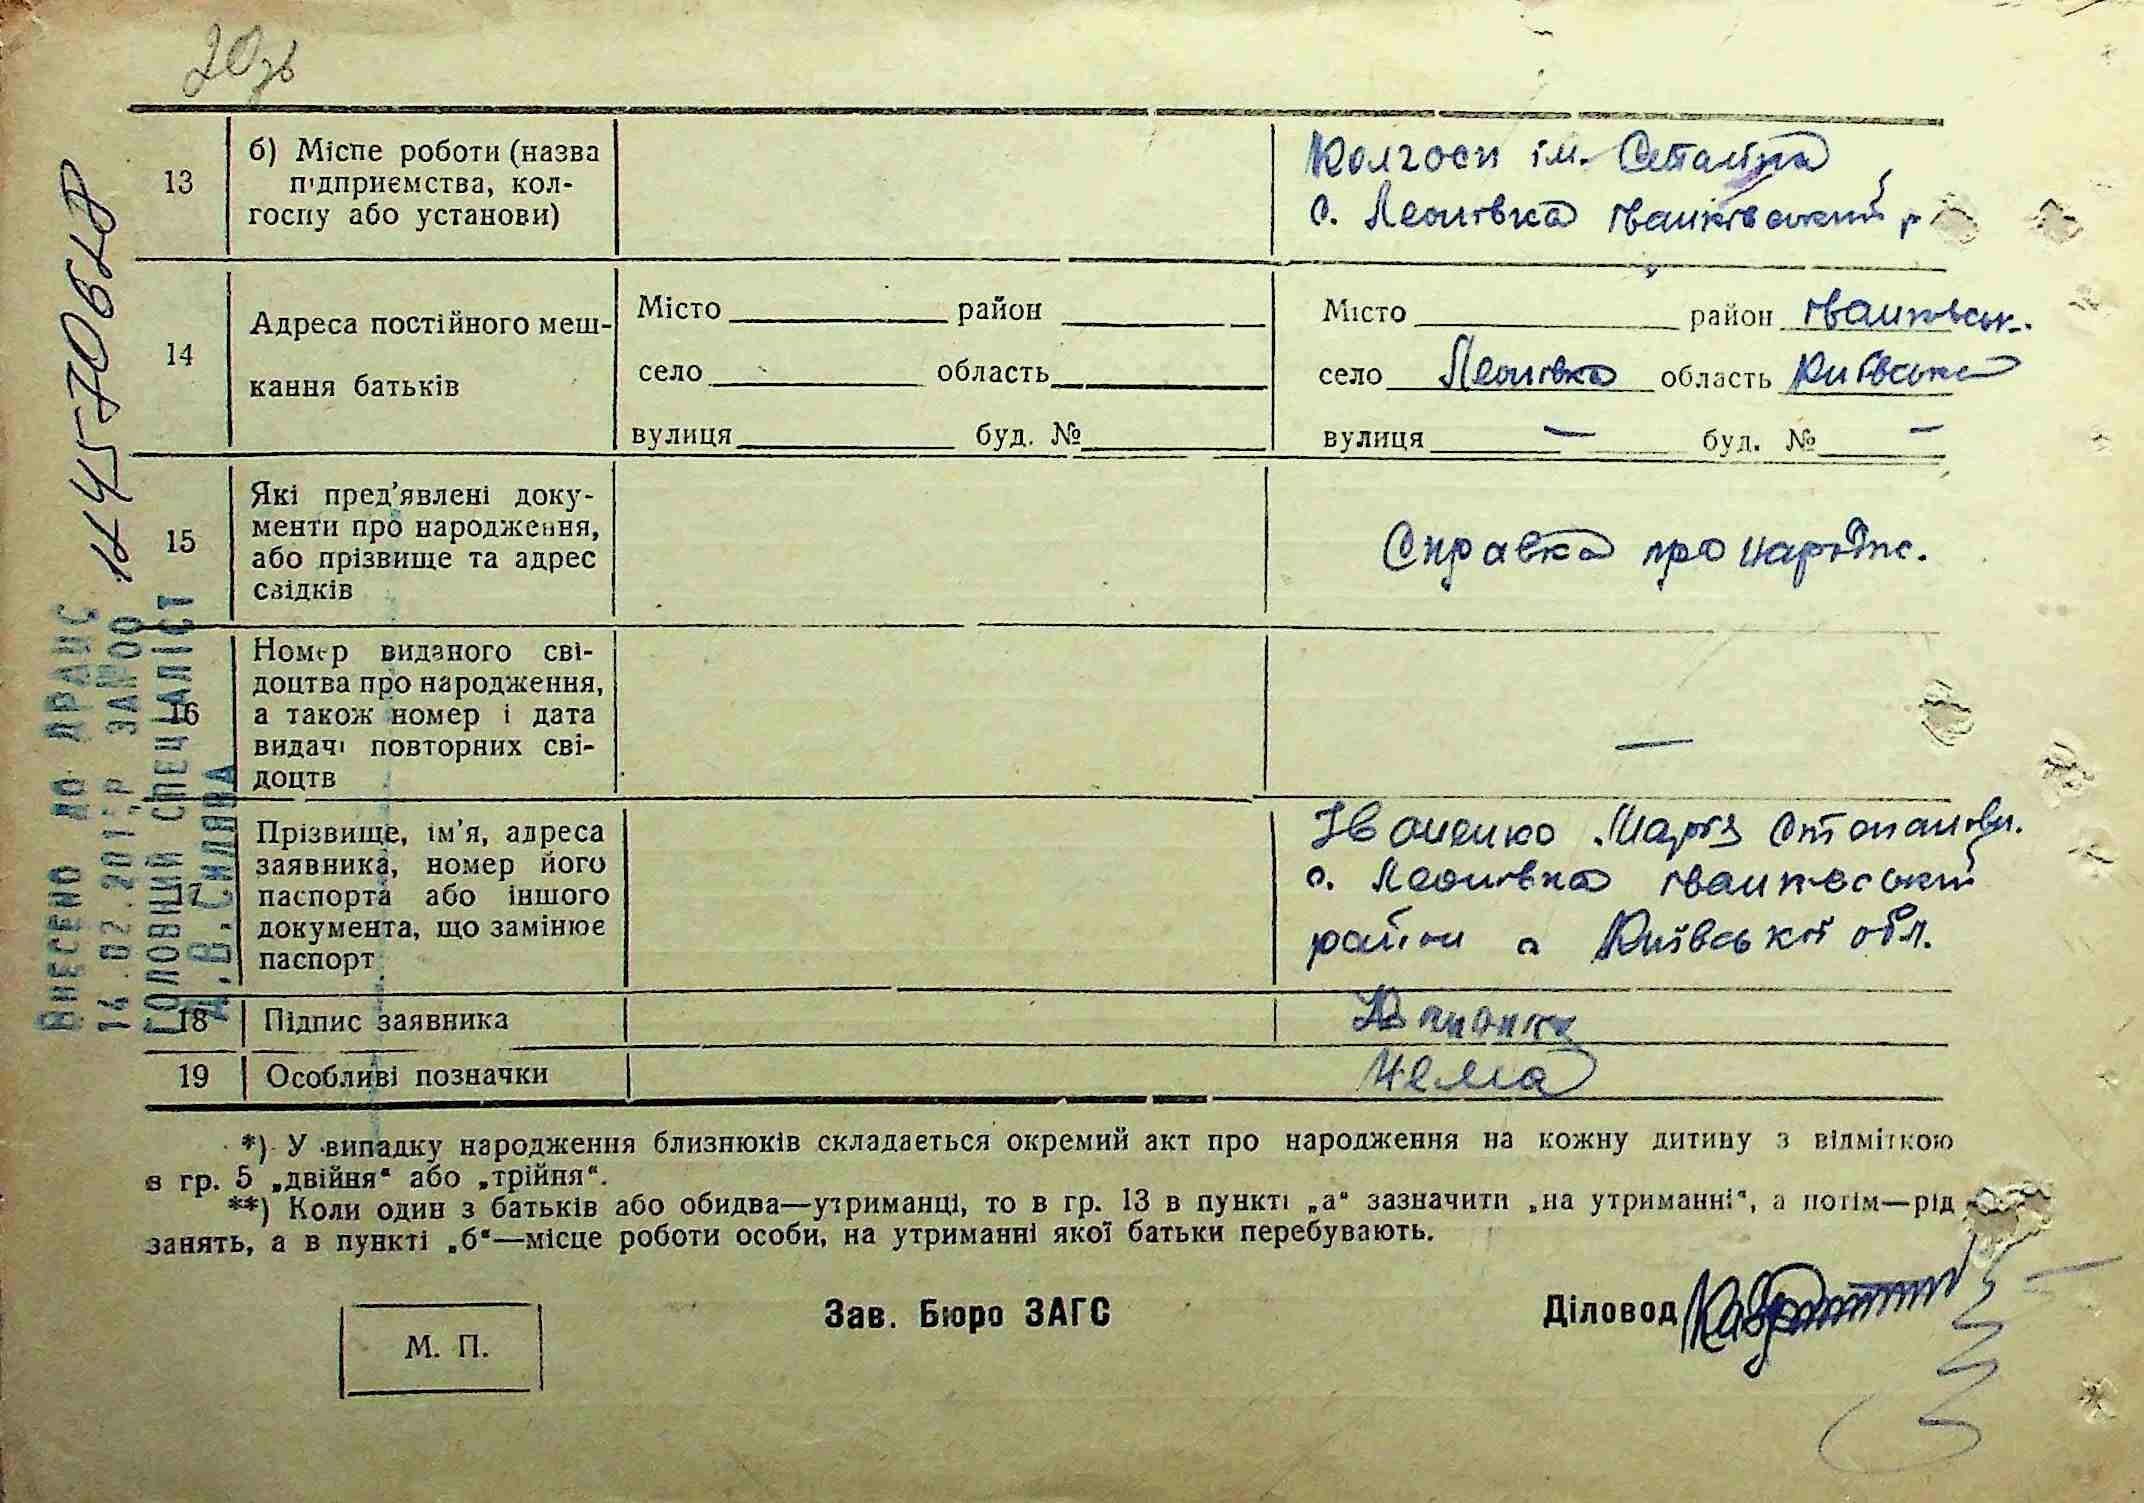 20зв
13
б) Місце роботи (назва
підприємства, кол-
госпу або установи)
Колгосп ім. Сталіна
с. Леонівка Іванківський р
14
Адреса постійного меш-
кання батьків
Місто район
село область
вулиця буд. №
Місто район Іванковськ.
село Леонівка область Київська
вулиця — буд. № —
15
Які пред'явлені доку-
менти про народження,
або прізвище та адрес
свідків
Справка про народж.
16
Номер виданого сві-
доцтва про народження,
а також номер і дата
видачі повторних сві-
доцтв
—
17
Прізвище, ім'я, адреса
заявника, номер його
паспорта або іншого
документа, що замінює
паспорт
Іваненко Марія Степанівн.
с. Леонівка Іванковський
район а Київської обл.
18
Підпис заявника
19
Особливі позначки
Нема
*) У випадку народження близнюків складається окремий акт про народження на кожну дитину з відміткою
в гр. 5 „двійня“ або „трійня“.
**) Коли один з батьків або обидва—утриманці, то в гр. 13 в пункті „а“ зазначити „на утриманні“, а потім—рід
занять, а в пункті „б“—місце роботи особи, на утриманні якої батьки перебувають.
М. П.
Зав. Бюро ЗАГС
Діловод
ВНЕСЕНО ДО ДРАЦС
14.02.201 Р ЗА №00
ГОЛОВНИЙ СПЕЦІАЛІСТ